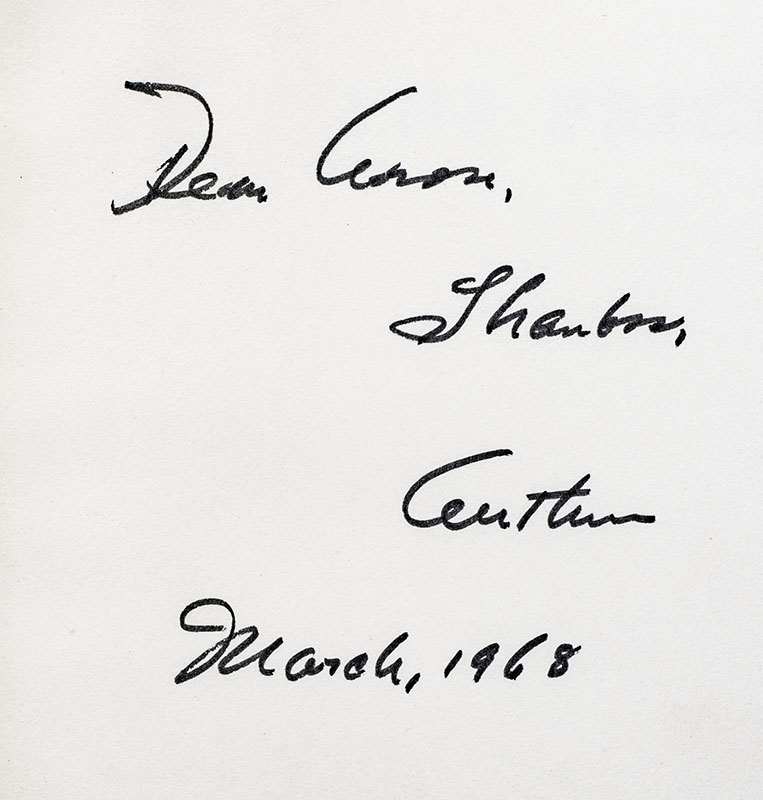 Dear Aaron,
Thanks,
Arthur
March, 1968